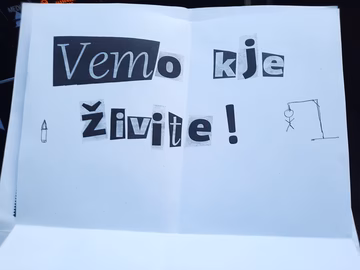 Vemo kje
živite!